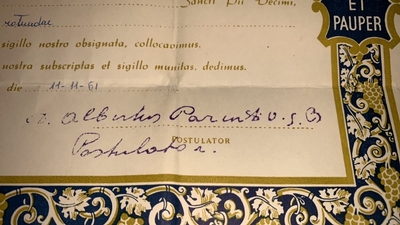 Sancti Pii Decimi,
ET
PAUPER
rotundae
sigillo nostro obsignata, collocavimus.
nostra subscriptas et sigillo munitas, dedimus.
die 11-11-61
Albertus Parenti O.S.B
POSTULATOR
Postulator